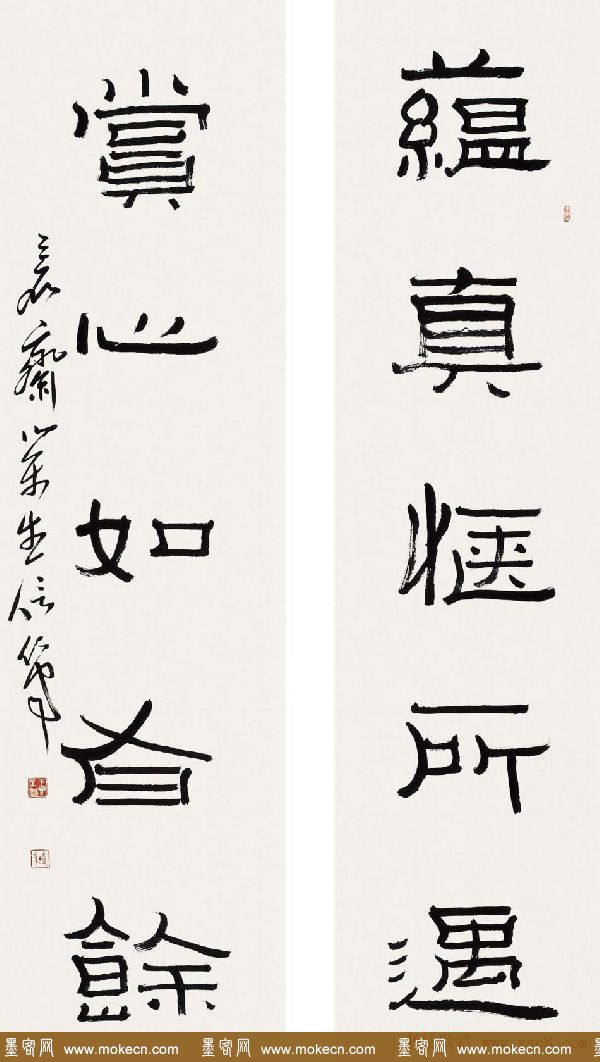 蘊真愜所遇
賞心如有餘
齋業生信筆
墨客网 www.mokecn.com 墨客网 www.mokecn.com 墨客网 www.mokecn.com